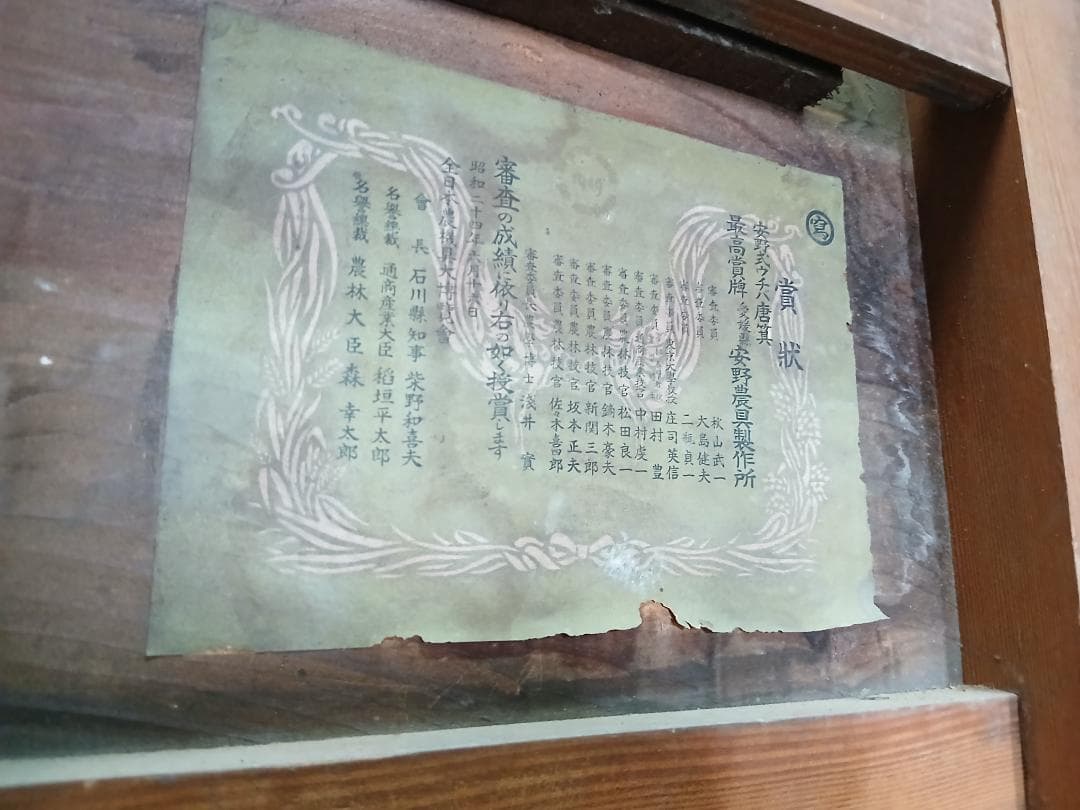 寫
賞狀
安野式ウチハ唐箕
最高賞牌 愛媛縣 安野農具製作所
審査委員 秋山武一
審査委員 大島健夫
審査委員 二瓶貞一
審査委員 庄司英信
審査委員 田村豊
審査委員 中村虔一
審査委員農林技官 松田良一
審査委員農林技官 鏑木豪夫
審査委員農林技官 新関三郎
審査委員農林技官 坂本正夫
審査委員農林技官 佐々木喜四郎
審査委員長農學博士 淺井 實
審査の成績に依り右の如く授賞します
昭和二十四年 月十 日
全日本農機具大博覧會
會長 石川縣知事 柴野和喜夫
名譽總裁 通商産業大臣 稻垣平太郎
名譽總裁 農林大臣 森 幸太郎